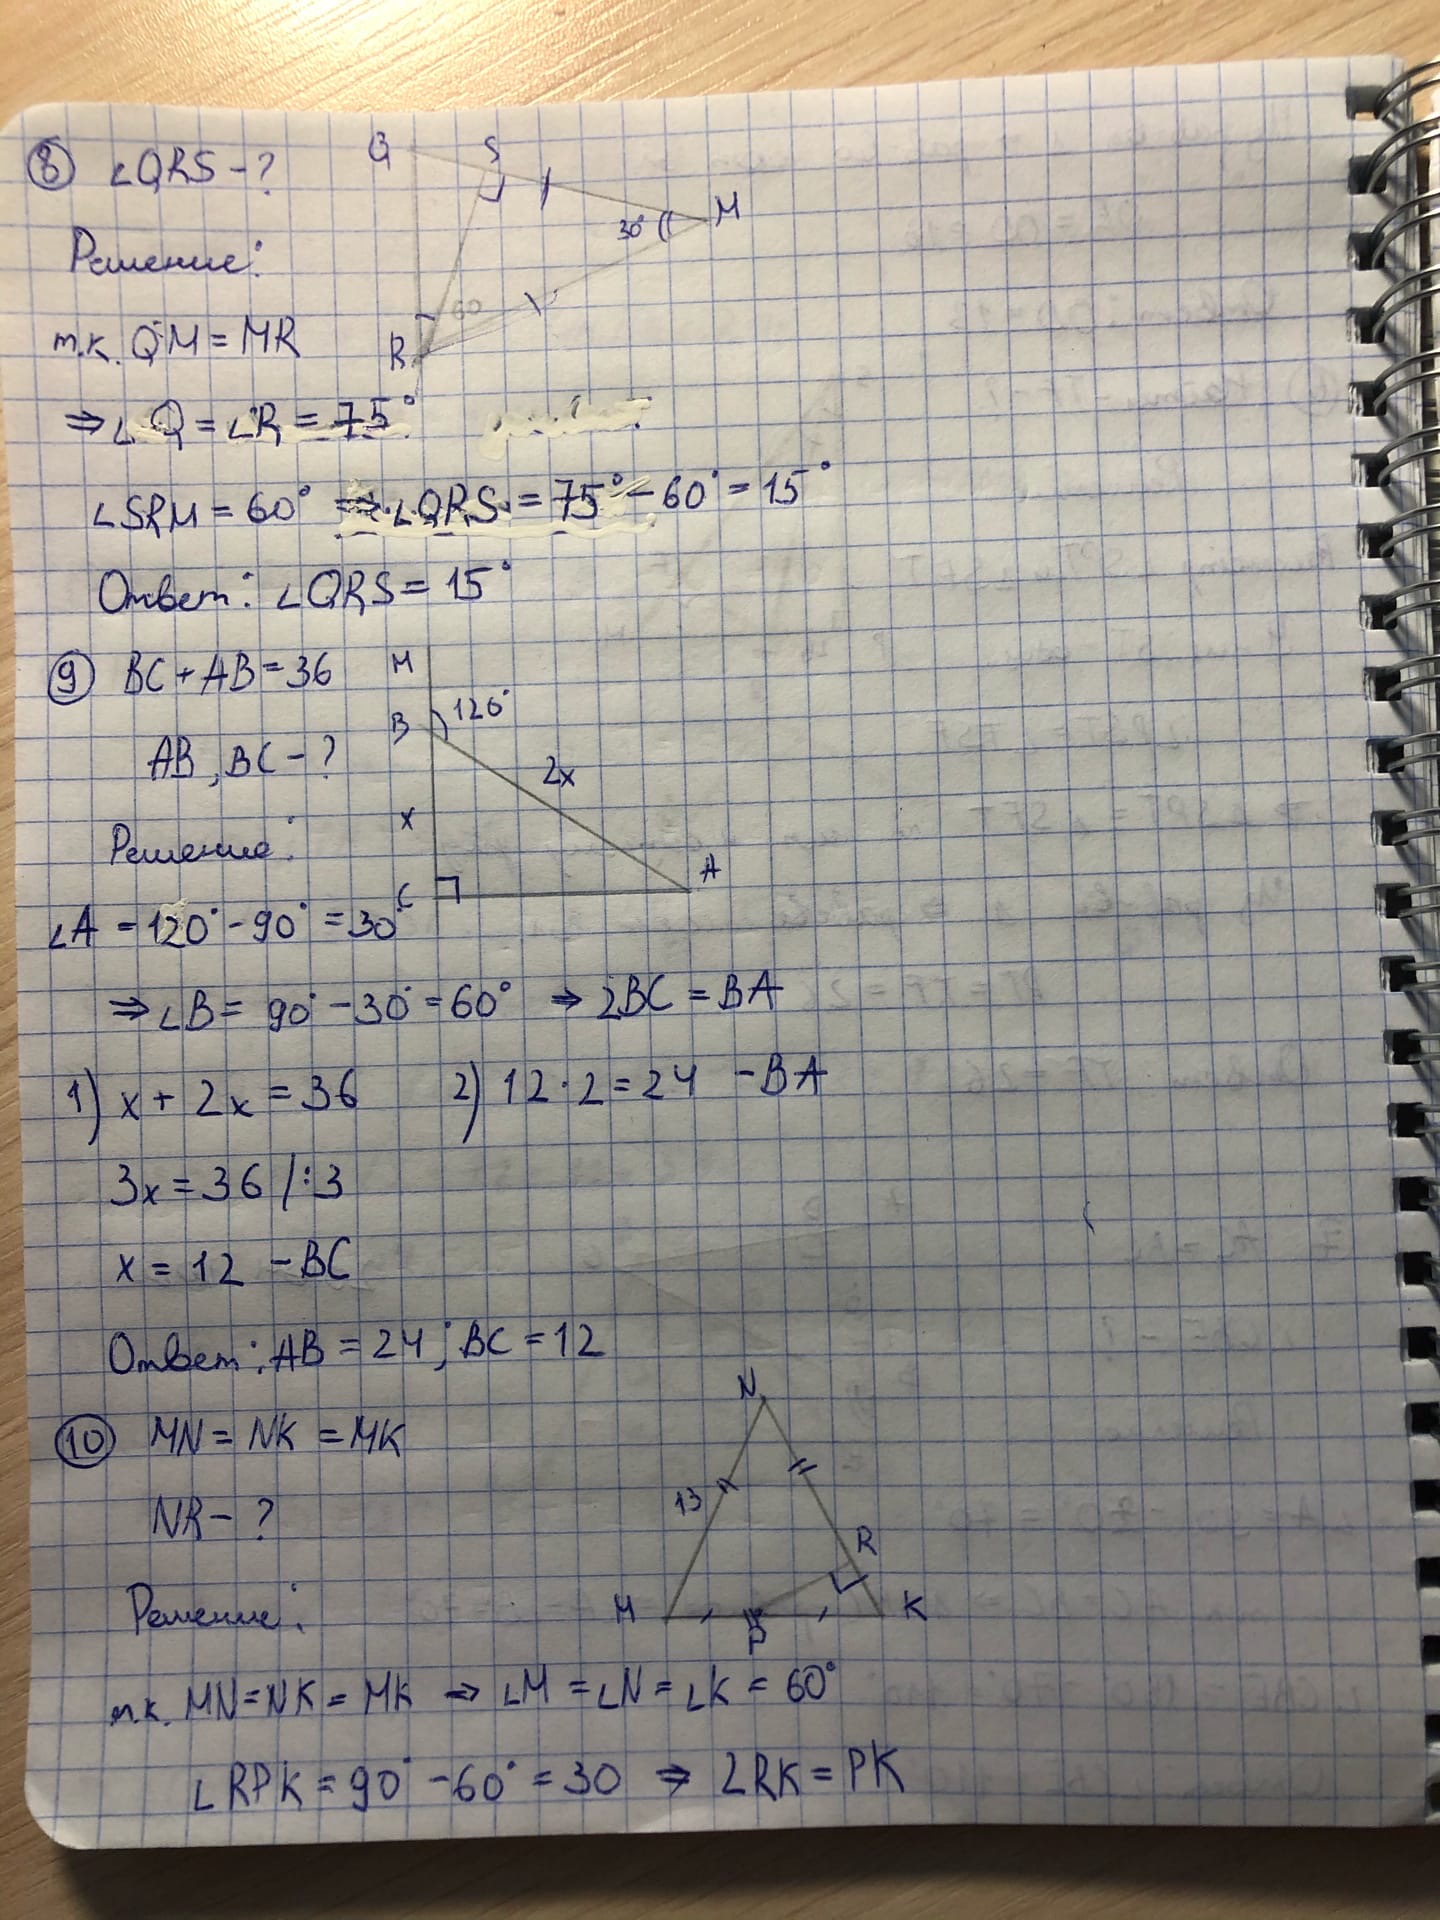 8 ∠QRS - ?
Q S M 30° 60 R
Решение:
т.к. QM = MR
⇒ ∠Q = ∠R = 75°
∠SRM = 60° ⇒ ∠QRS = 75° - 60° = 15°
Ответ: ∠QRS = 15°
9 BC + AB = 36
M B 120° 2x x C A
AB, BC - ?
Решение:
∠A = 120° - 90° = 30°
⇒ ∠B = 90° - 30° = 60° ⇒ 2BC = BA
1) x + 2x = 36 2) 12 · 2 = 24 - BA
3x = 36 /:3
x = 12 - BC
Ответ: AB = 24; BC = 12
10 MN = NK = MK
N 13 R M P K
NR - ?
Решение:
т.к. MN = NK = MK ⇒ ∠M = ∠N = ∠K = 60°
∠RPK = 90° - 60° = 30 ⇒ 2RK = PK